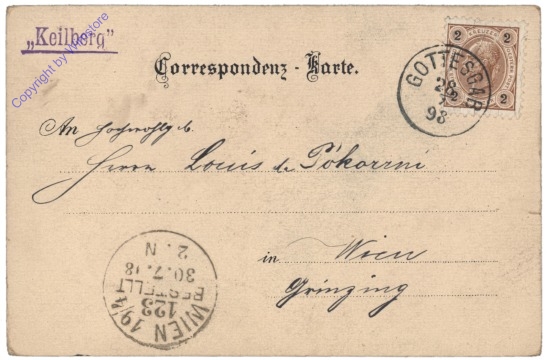 „Keilberg"
Copyright by whostore
Correspondenz-Karte.
2 KREUZER 2
2 2
GOTTESGAB
28/7
98
An Hochwohlgb.
Herrn Louis de Pokorrni
in Wien
Grinzing
WIEN 19/1
123
BESTELLT
30.7.98
2. N